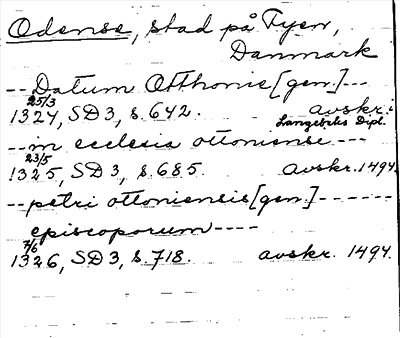 Odense, stad på Fyen,
Danmark
-- Datum Otthonie [gen.] ---
25/3
1324, SD 3, s. 642. avskr. i
Langebeks Dipl.
-- in ecclesia ottoniense ---
23/5
1325, SD 3, s. 685. avskr. 1494.
-- petri ottoniensis [gen.] ------
episcoporum ----
7/6
1326, SD 3, s. 718. avskr. 1494.